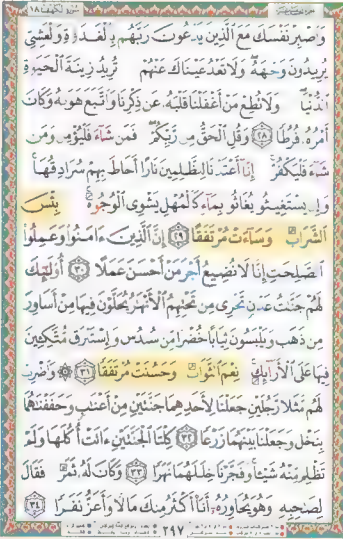 سورة الكهف ١٨
وَاصْبِرْ نَفْسَكَ مَعَ الَّذِينَ يَدْعُونَ رَبَّهُم بِالْغَدَوٰةِ وَالْعَشِيِّ
يُرِيدُونَ وَجْهَهُ وَلَا تَعْدُ عَيْنَاكَ عَنْهُمْ تُرِيدُ زِينَةَ الْحَيَوٰةِ
الدُّنْيَا وَلَا تُطِعْ مَنْ أَغْفَلْنَا قَلْبَهُ عَن ذِكْرِنَا وَاتَّبَعَ هَوَىٰهُ وَكَانَ
أَمْرُهُ فُرُطًا ٢٨ وَقُلِ الْحَقُّ مِن رَّبِّكُمْ فَمَن شَاءَ فَلْيُؤْمِن وَمَن
شَاءَ فَلْيَكْفُرْ إِنَّا أَعْتَدْنَا لِلظَّٰلِمِينَ نَارًا أَحَاطَ بِهِمْ سُرَادِقُهَا
وَإِن يَسْتَغِيثُوا يُغَاثُوا بِمَاءٍ كَالْمُهْلِ يَشْوِي الْوُجُوهَ بِئْسَ
الشَّرَابُ وَسَاءَتْ مُرْتَفَقًا ٢٩ إِنَّ الَّذِينَ ءَامَنُوا وَعَمِلُوا
الصَّٰلِحَٰتِ إِنَّا لَا نُضِيعُ أَجْرَ مَنْ أَحْسَنَ عَمَلًا ٣٠ أُولَٰئِكَ
لَهُمْ جَنَّٰتُ عَدْنٍ تَجْرِي مِن تَحْتِهِمُ الْأَنْهَٰرُ يُحَلَّوْنَ فِيهَا مِنْ أَسَاوِرَ
مِن ذَهَبٍ وَيَلْبَسُونَ ثِيَابًا خُضْرًا مِّن سُندُسٍ وَإِسْتَبْرَقٍ مُّتَّكِئِينَ
فِيهَا عَلَى الْأَرَائِكِ نِعْمَ الثَّوَابُ وَحَسُنَتْ مُرْتَفَقًا ٣١ ۞ وَاضْرِبْ
لَهُم مَّثَلًا رَّجُلَيْنِ جَعَلْنَا لِأَحَدِهِمَا جَنَّتَيْنِ مِنْ أَعْنَٰبٍ وَحَفَفْنَٰهُمَا
بِنَخْلٍ وَجَعَلْنَا بَيْنَهُمَا زَرْعًا ٣٢ كِلْتَا الْجَنَّتَيْنِ ءَاتَتْ أُكُلَهَا وَلَمْ
تَظْلِم مِّنْهُ شَيْـًٔا وَفَجَّرْنَا خِلَٰلَهُمَا نَهَرًا ٣٣ وَكَانَ لَهُ ثَمَرٌ فَقَالَ
لِصَٰحِبِهِ وَهُوَ يُحَاوِرُهُ أَنَا أَكْثَرُ مِنكَ مَالًا وَأَعَزُّ نَفَرًا ٣٤
٢٩٧